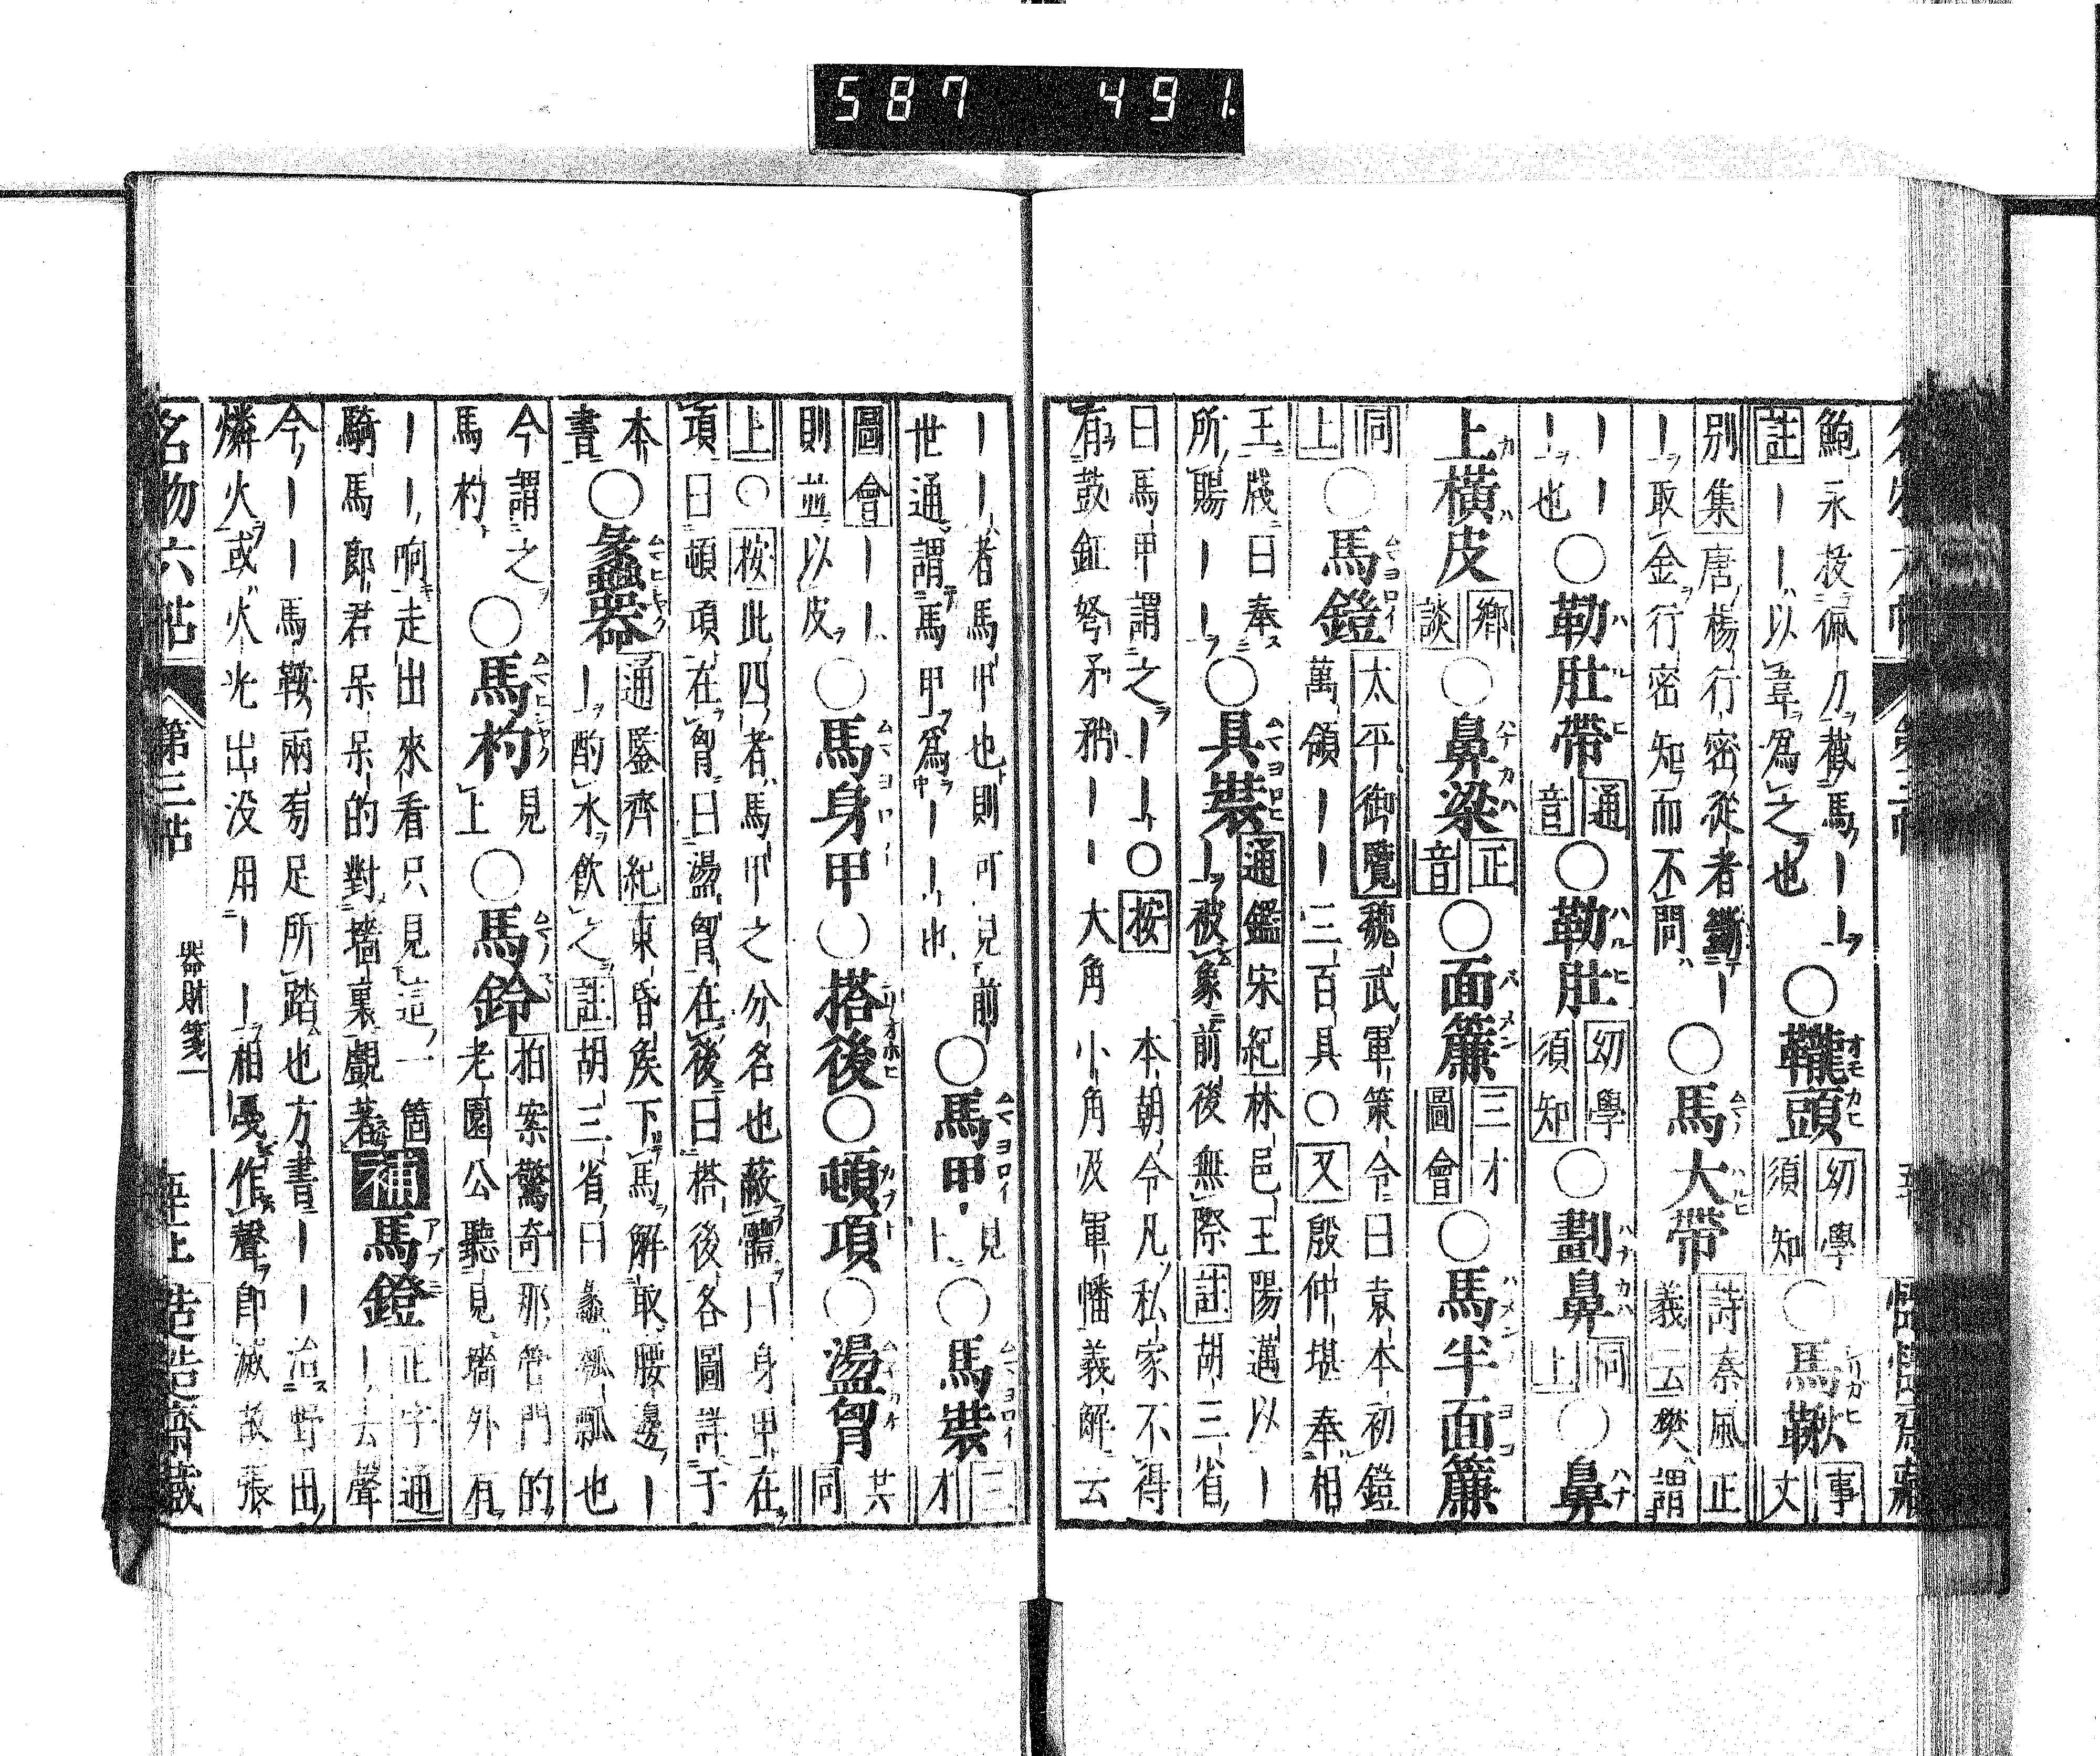 587 491.
鮑永拔佩刀截馬丨丨
註丨丨以韋爲之也
○鞴頭
幼學須知
○馬鞦
事文
別集唐楊行密從者斷丨
丨取金行密知而不問
○馬大帶
詩秦風正
義云樊謂
丨丨
丨也
○勒肚帶
通音
○勒肚
幼學須知
○劃鼻
同上
○鼻
上橫皮
鄉談
○鼻梁
正音
○面簾
三才圖會
○馬半面簾
同上
○馬鎧
太平御覽魏武軍策令曰袁本初鎧
萬領丨丨三百具○又殷仲堪奉相
王牋曰奉
所賜丨丨
○具裝
通鑑宋紀林邑王陽邁以丨
丨被象前後無際註胡三省
曰馬甲謂之丨丨○按 本朝令凡私家不得
有鼓鉦弩矛矟丨丨大角小角及軍幡義解云
丨丨者馬甲也則可見前
世通謂馬甲爲丨丨也
○馬甲
見上
○馬裝
三才
圖會丨丨
則並以皮
○馬身甲○搭後○頓項○盪胷
共同
上○按此四者馬甲之分名也蔽體曰身甲在
項曰頓項在胷曰盪胷在後曰搭後各圖詳于
本書
○蠡器
通鑒齊紀東昏矦下馬解取腰邊丨
丨酌水飲之註胡三省曰蠡瓠瓢也
今謂之
馬杓
○馬杓
見上
○馬鈴
拍案驚奇那管門的
老園公聽見墻外有
丨丨响走出來看只見這一箇
騎馬郎君呆呆的對墻裏覷著
補馬鐙
正字通
丨去聲
今丨丨馬鞍兩旁足所踏也方書丨丨治野田
燐火或火光出没用丨丨相戞作聲卽滅故張
名物六帖
第三帖
器財箋一